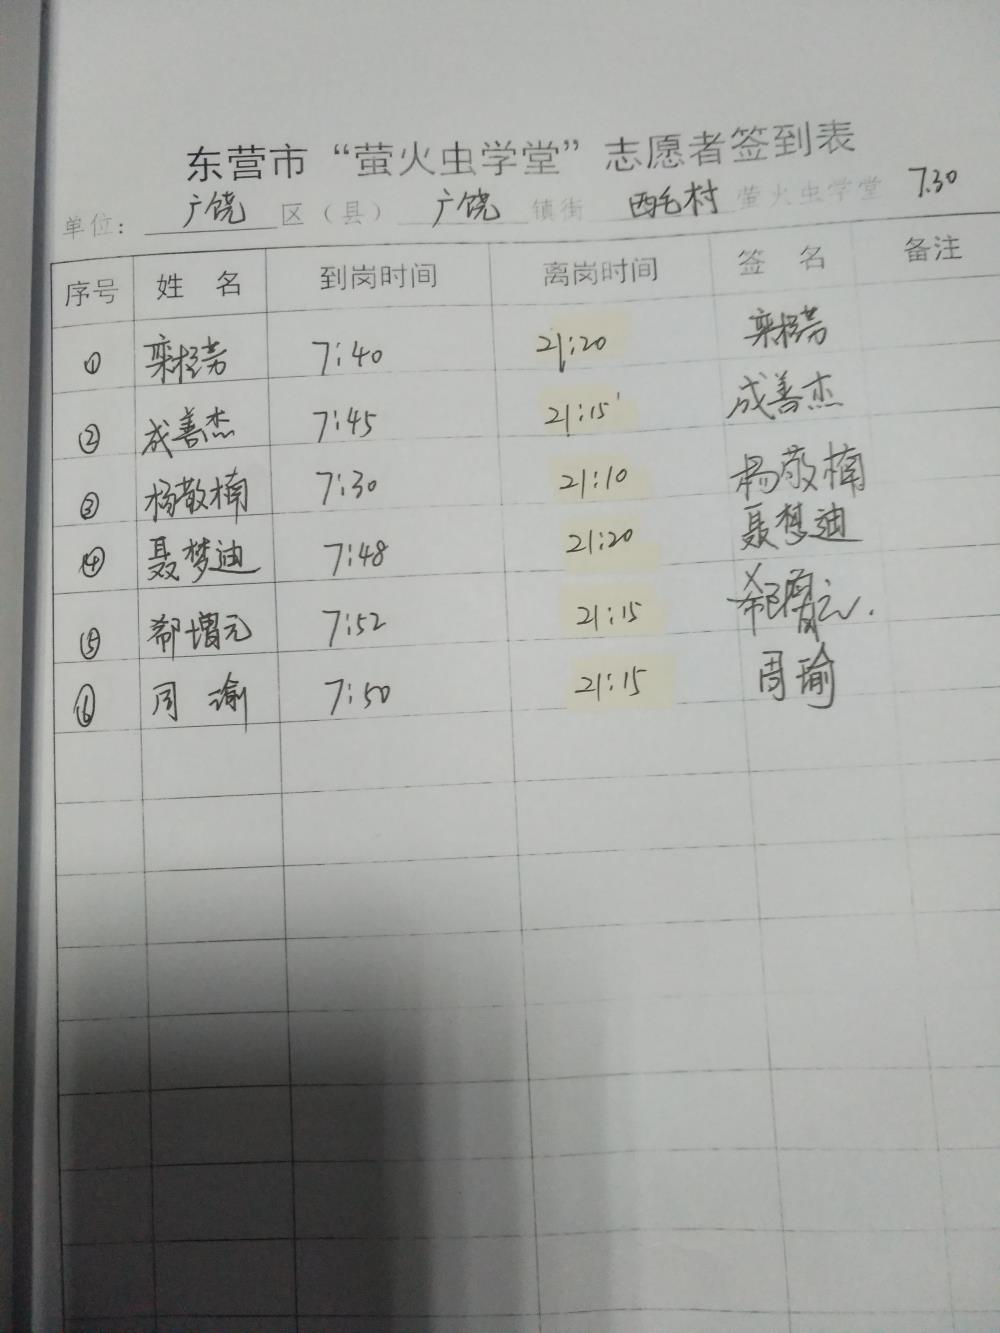 东营市“萤火虫学堂”志愿者签到表
单位：广饶区（县）广饶镇街西毛村萤火虫学堂 7.30
序号 姓名 到岗时间 离岗时间 签名 备注
① 栾 7:40 21:20 栾
② 成善杰 7:45 21:15 成善杰
③ 杨敬楠 7:30 21:10 杨敬楠
④ 聂梦迪 7:48 21:20 聂梦迪
⑤ 郗增元 7:52 21:15 郗增元
⑥ 周瑜 7:50 21:15 周瑜